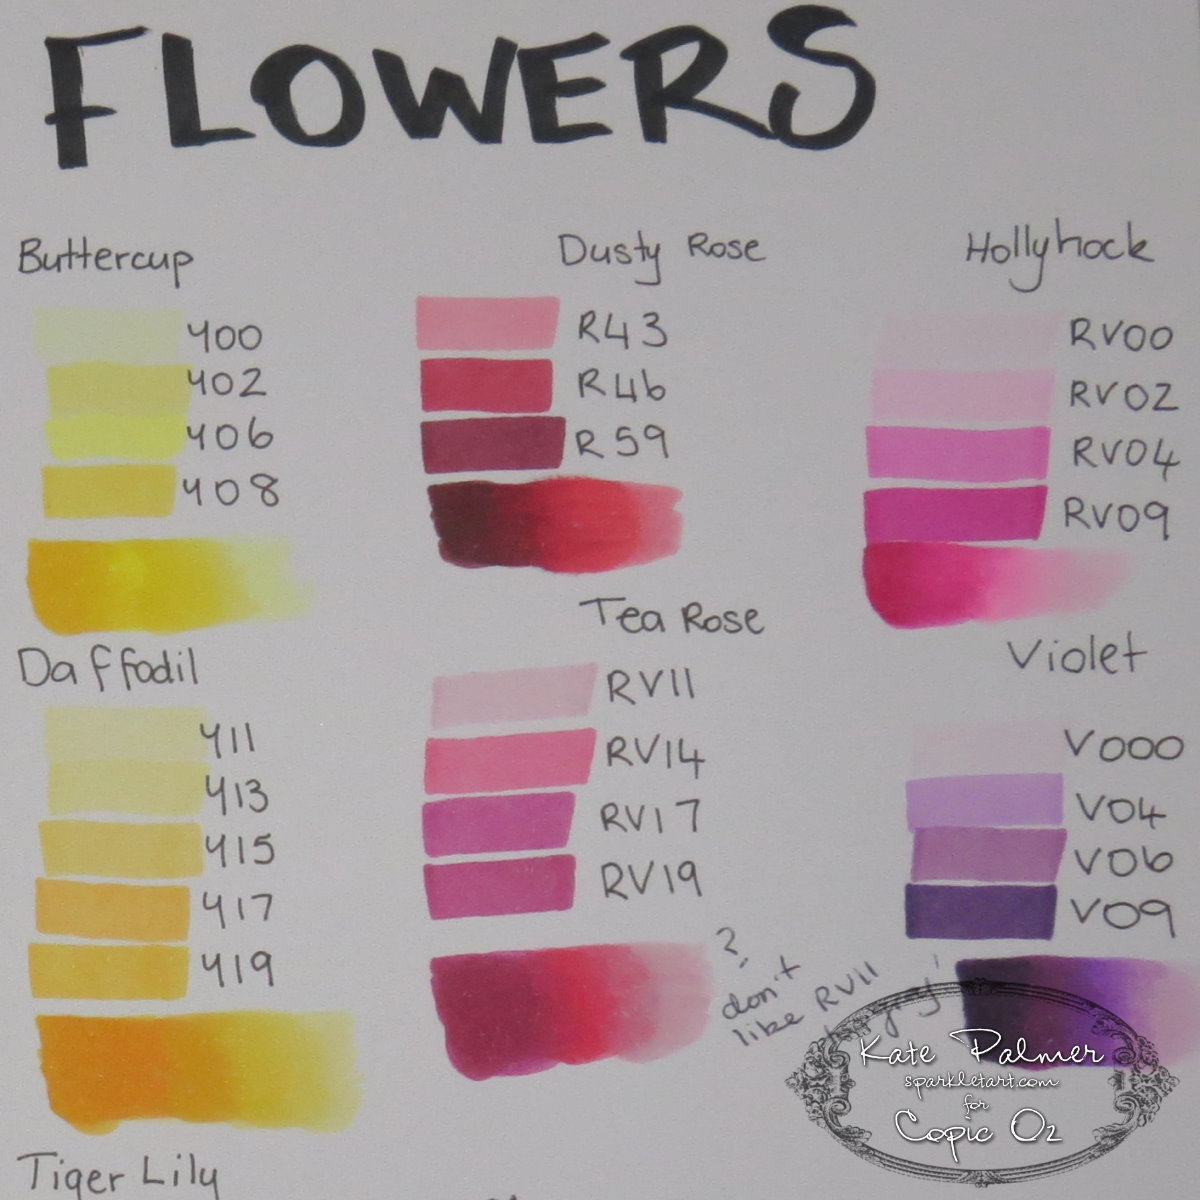 FLOWERS
Buttercup
Y00
Y02
Y06
Y08
Daffodil
Y11
Y13
Y15
Y17
Y19
Tiger Lily
Dusty Rose
R43
R46
R59
Tea Rose
RV11
RV14
RV17
RV19
?
don't
like RV11
Hollyhock
RV00
RV02
RV04
RV09
Violet
V000
V04
V06
V09
Kate Palmer
sparkletart.com
for
Copic Oz